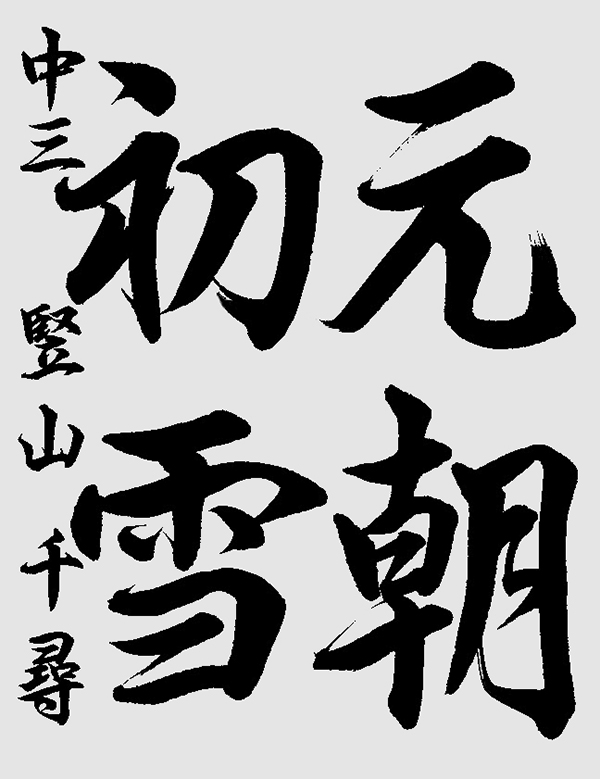 元朝
初雪
中三 竪山千尋